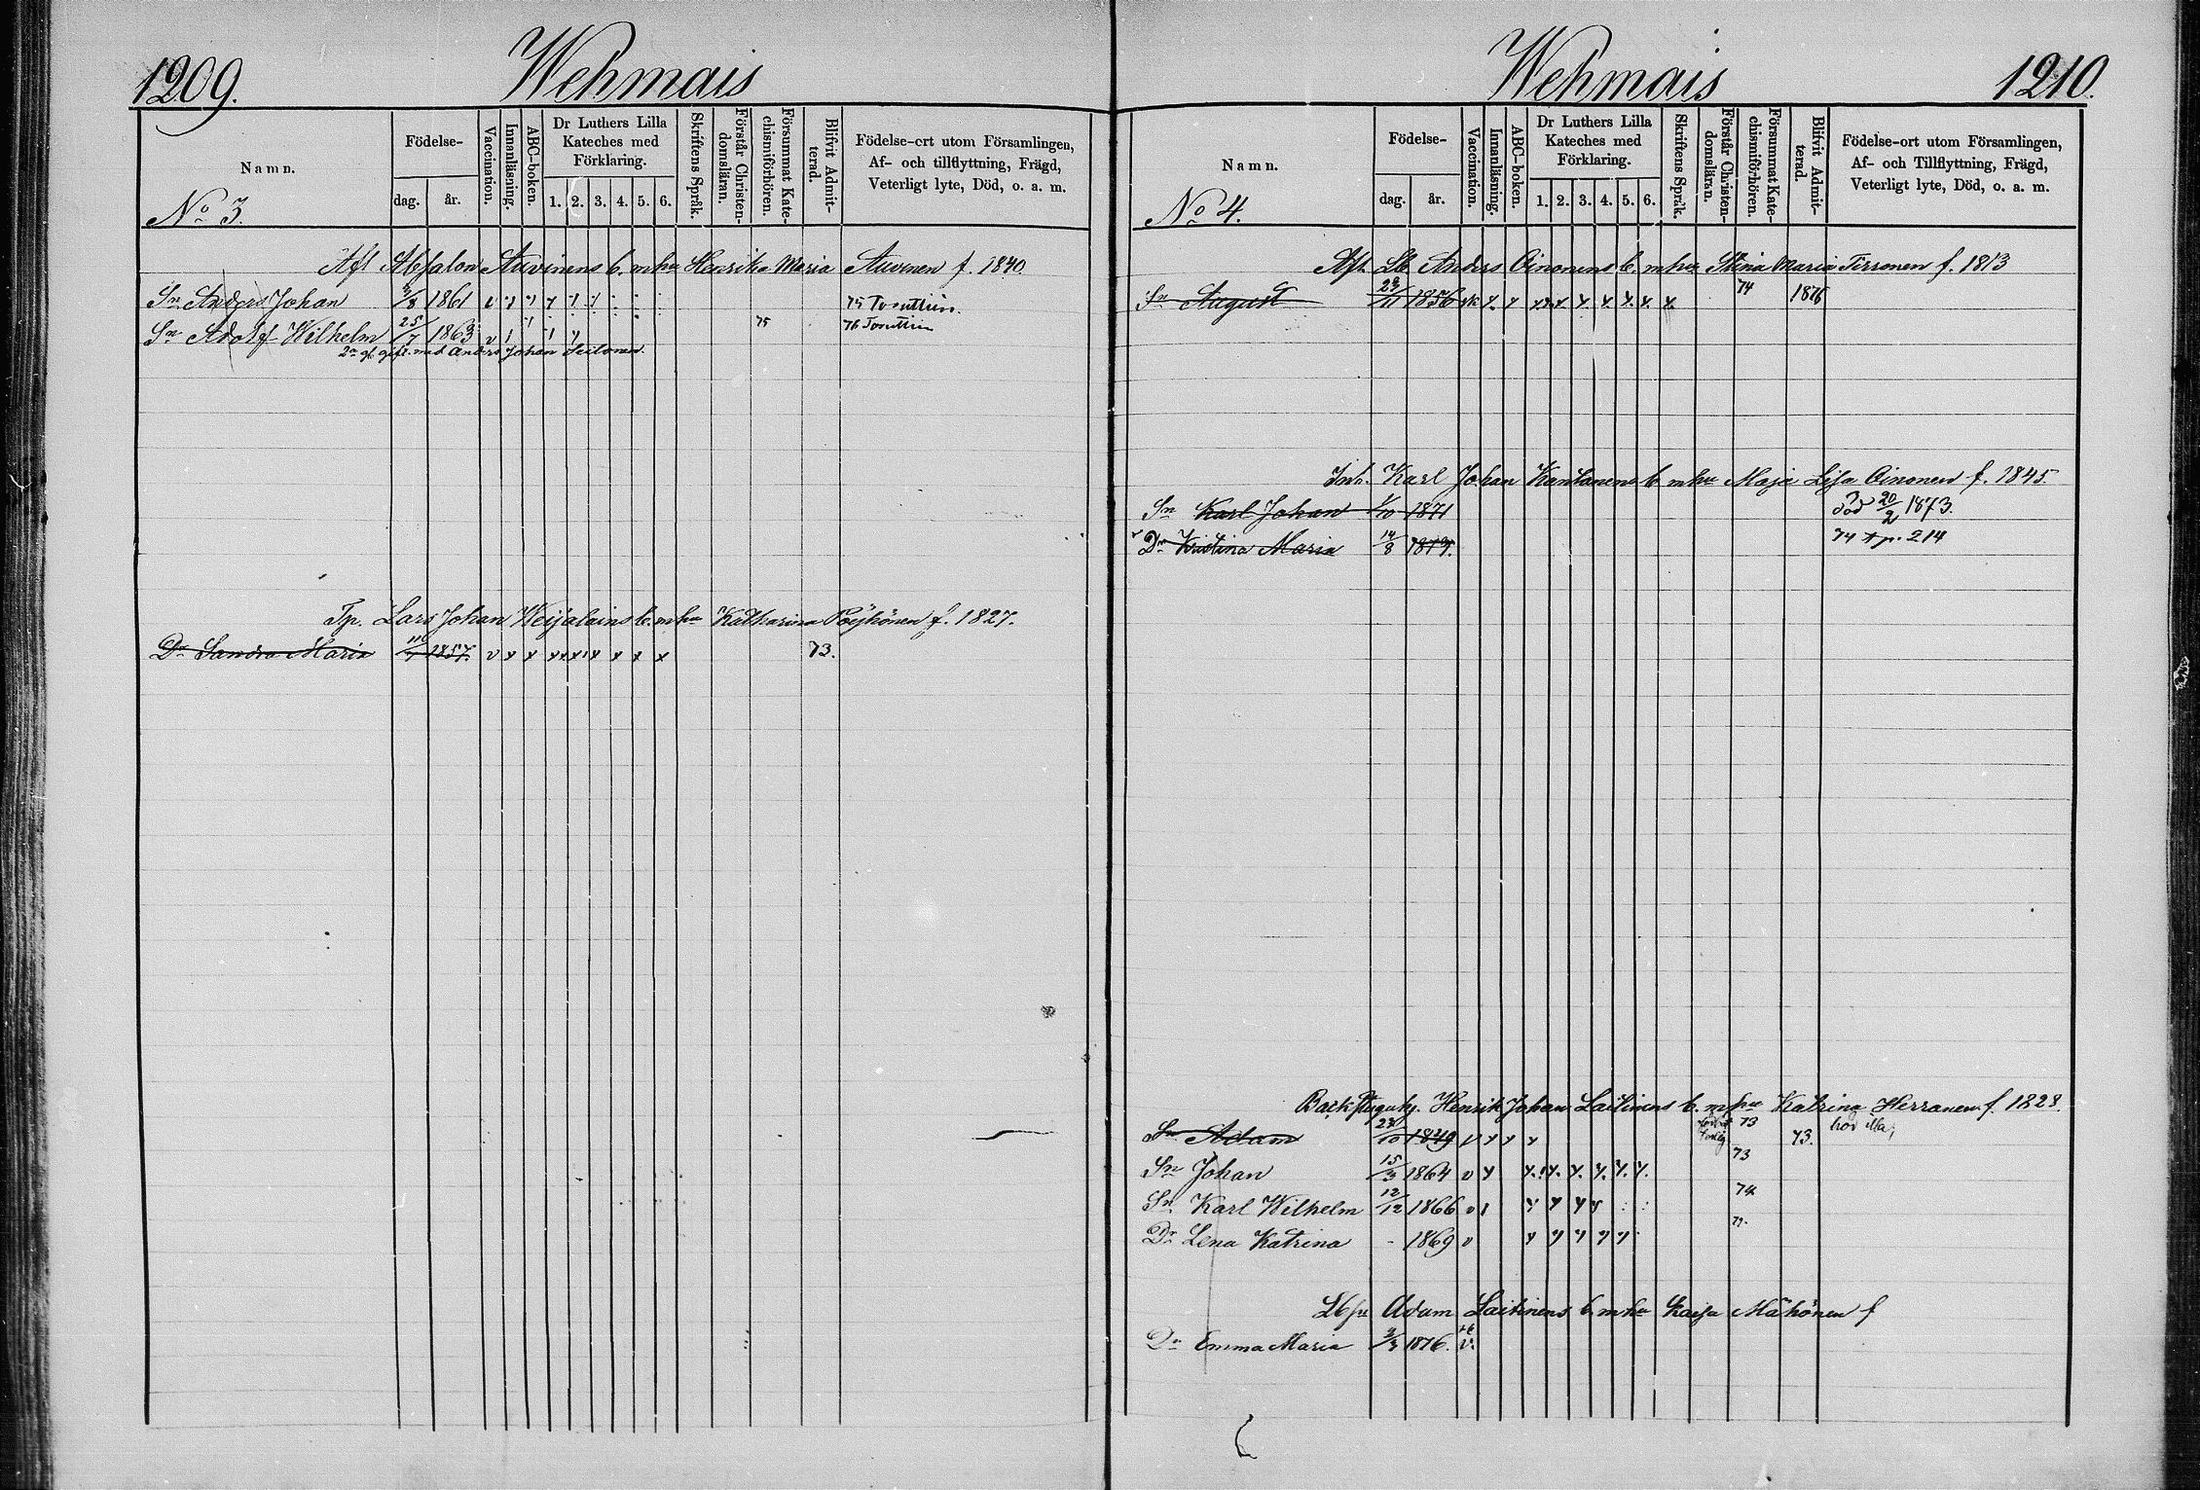 1209.
Wehmais
Namn.
Födelse-
dag. år.
Vaccination.
Innanläsning.
ABC-boken.
Dr Luthers Lilla
Kateches med
Förklaring.
1. 2. 3. 4. 5. 6.
Skriftens Språk.
Förstår Christen-
domsläran.
Försummat Kate-
chismiförhören.
Blifvit Admit-
terad.
Födelse-ort utom Församlingen,
Af- och tillflyttning, Frägd,
Veterligt lyte, Död, o. a. m.
No 3.
Afl Absalon Auvinens b. m hu Henrika Maria Auvinen f. 1840
Sn Anders Johan 1861 v 75
Sn Adolf Wilhelm 25/7 1863 v 75 76
2a gl. gift. med Anders Johan
Tp. Lars Johan Weijalains b. m hu Katharina Pöyhönen f. 1827.
Dr Sandra Maria 1857. v x x x x x x x x x 73.
Wehmais
1210.
Namn.
Födelse-
dag. år.
Vaccination.
Innanläsning.
ABC-boken.
Dr Luthers Lilla
Kateches med
Förklaring.
1. 2. 3. 4. 5. 6.
Skriftens Språk.
Förstår Christen-
domsläran.
Försummat Kate-
chismiförhören.
Blifvit Admit-
terad.
Födelse-ort utom Församlingen,
Af- och Tillflyttning, Frägd,
Veterligt lyte, Död, o. a. m.
No 4.
Afl. Lb Anders Oinonens b. m hu Stina Maria Tirronen f. 1813
Sn August 23/11 1856 74 1876
Inh. Karl Johan Kantanens b m hu Maja Lisa Oinonen f. 1845.
Sn Karl Johan 1/10 1871 död 20/2 1873.
Dr Kristina Maria 14/8 1873. 74 t p. 214
Backstuguhj. Henrik Johan Laitinens b. m hu Katrina Herranen f. 1828.
Sn Adam 1849 v x x x 73 73.
Sn Johan 15/3 1864 v x 73
Sn Karl Wilhelm 12/12 1866 v 74
Dr Lena Katrina - 1869 v
Lbfr Adam Laitinens b. m hu Kaisa Mähönen f
Dr Emma Maria 1876. v.